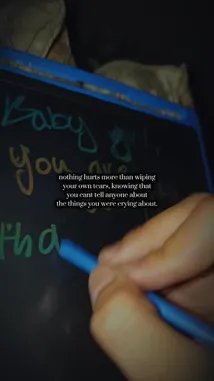 Baby
you are
nothing hurts more than wiping
your own tears, knowing that
you cant tell anyone about
the things you were crying about.
tha